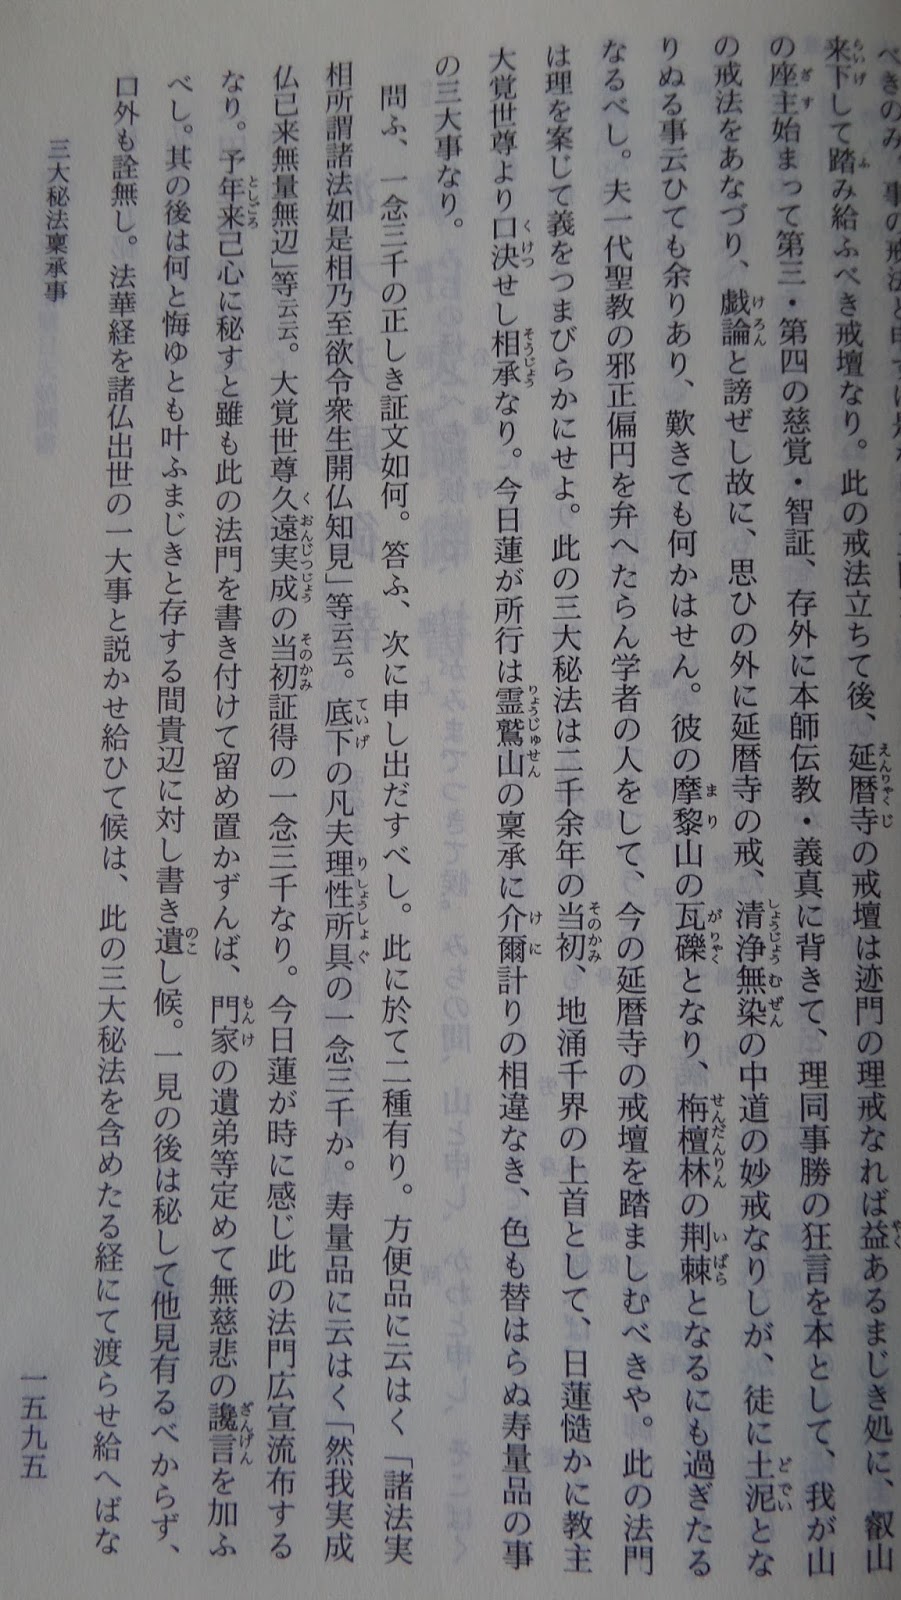 べきのみ。事の戒法と申すは是
来下して踏み給ふべき戒壇なり。此の戒法立ちて後、延暦寺の戒壇は迹門の理戒なれば益あるまじき処に、叡山
の座主始まって第三・第四の慈覚・智証、存外に本師伝教・義真に背きて、理同事勝の狂言を本として、我が山
の戒法をあなづり、戯論と謗ぜし故に、思ひの外に延暦寺の戒、清浄無染の中道の妙戒なりしが、徒に土泥とな
りぬる事云ひても余りあり、歎きても何かはせん。彼の摩黎山の瓦礫となり、栴檀林の荊棘となるにも過ぎたる
なるべし。夫一代聖教の邪正偏円を弁へたらん学者の人をして、今の延暦寺の戒壇を踏ましむべきや。此の法門
は理を案じて義をつまびらかにせよ。此の三大秘法は二千余年の当初、地涌千界の上首として、日蓮慥かに教主
大覚世尊より口決せし相承なり。今日蓮が所行は霊鷲山の稟承に介爾計りの相違なき、色も替はらぬ寿量品の事
の三大事なり。
問ふ、一念三千の正しき証文如何。答ふ、次に申し出だすべし。此に於て二種有り。方便品に云はく「諸法実
相所謂諸法如是相乃至欲令衆生開仏知見」等云云。底下の凡夫理性所具の一念三千か。寿量品に云はく「然我実成
仏已来無量無辺」等云云。大覚世尊久遠実成の当初証得の一念三千なり。今日蓮が時に感じ此の法門広宣流布する
なり。予年来己心に秘すと雖も此の法門を書き付けて留め置かずんば、門家の遺弟等定めて無慈悲の讒言を加ふ
べし。其の後は何と悔ゆとも叶ふまじきと存する間貴辺に対し書き遺し候。一見の後は秘して他見有るべからず、
口外も詮無し。法華経を諸仏出世の一大事と説かせ給ひて候は、此の三大秘法を含めたる経にて渡らせ給へばな
三大秘法稟承事
一五九五